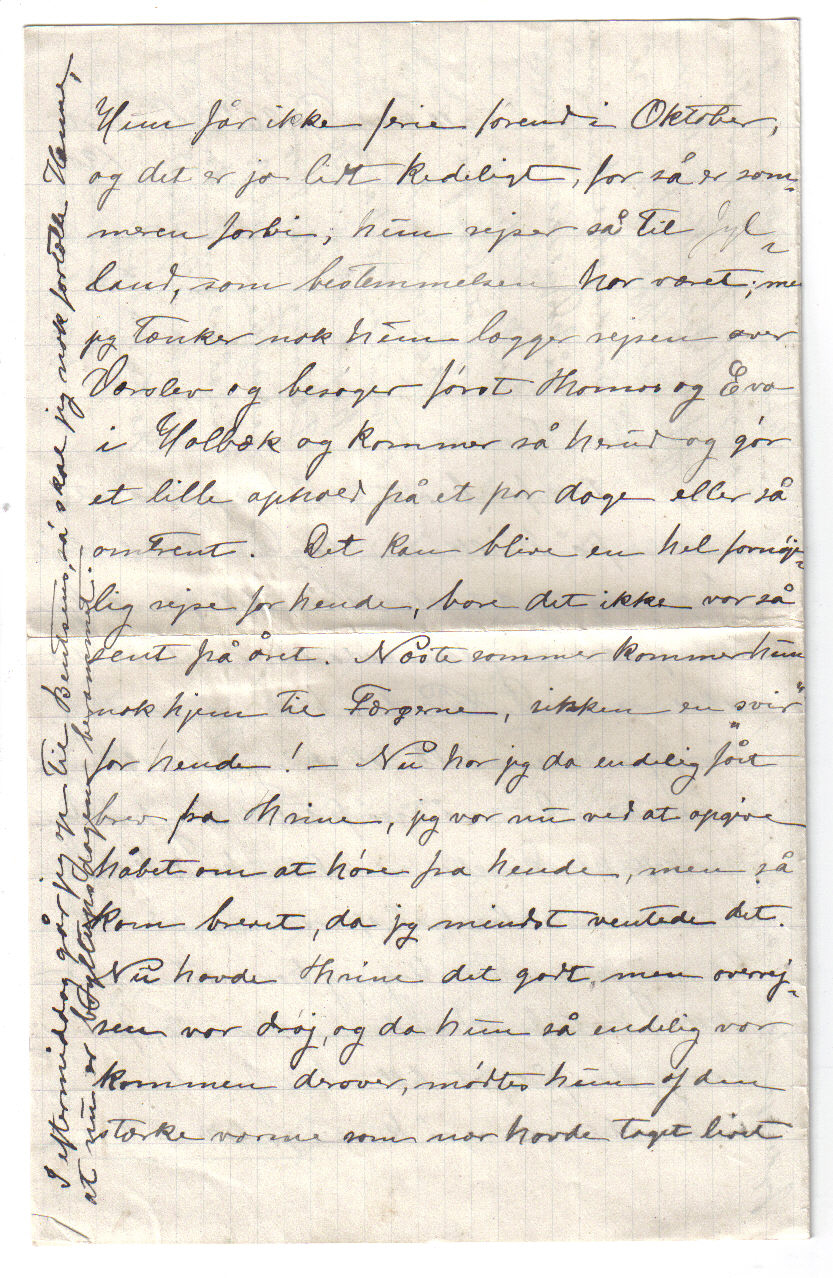 Hun får ikke ferie førend i Oktober,
og det er jo lidt kedeligt, for så er som-
meren forbi, hun rejser så til Jyl-
land, som bestemmelsen har været; men
jeg tænker nok hun lægger rejsen over
Værslev og besøger først Thomas og Eva
i Holbæk og kommer så herud og gør
et lille ophold på et par dage eller så
omtrent. Det kan blive en hel fornøje-
lig rejse for hende, bare det ikke var så
sent på året. Næste sommer kommer hun
nok hjem til Færgerne, sikken en "svir"
for hende! – Nu har jeg da endelig fået
brev fra Thrine, jeg var nu ved at opgive
håbet om at høre fra hende, men så
kom brevet, da jeg mindst ventede det.
Nu havde Thrine det godt, men overrej-
sen var drøj, og da hun så endelig var
kommen derover, mødtes hun af den
stærke varme som nær havde taget livet
I eftermiddag går jeg op til Bentsens, så skal jeg nok fortælle Hanne,
at nu er bryllupsdagen berammet.